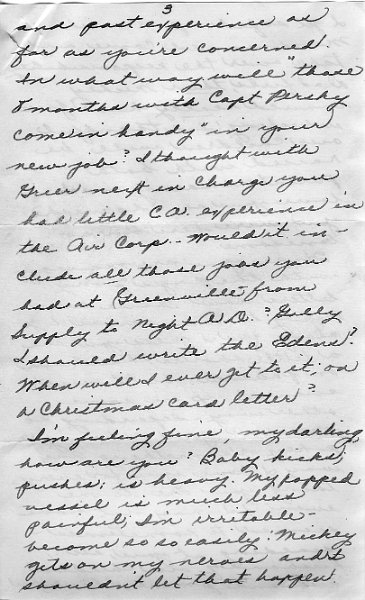 3
and past experience as
far as you're concerned.
In what way will "those
8 months with Capt Persky
come in handy" in your
new job? I thought with
Greer next in charge you
had little C.A. experience in
the Air Corp. - Would it in-
clude all those jobs you
had at Greenville - from
Supply to Night A.D.? Gully
I should write the Edens?
When will I ever get to it, on
a Christmas card letter?
I'm feeling fine, my darling,
how are you? Baby kicks,
pushes; is heavy. My popped
vessel is much less
painful; I'm irritable -
become so so easily. Mickey
gets on my nerves and I
shouldn't let that happen.